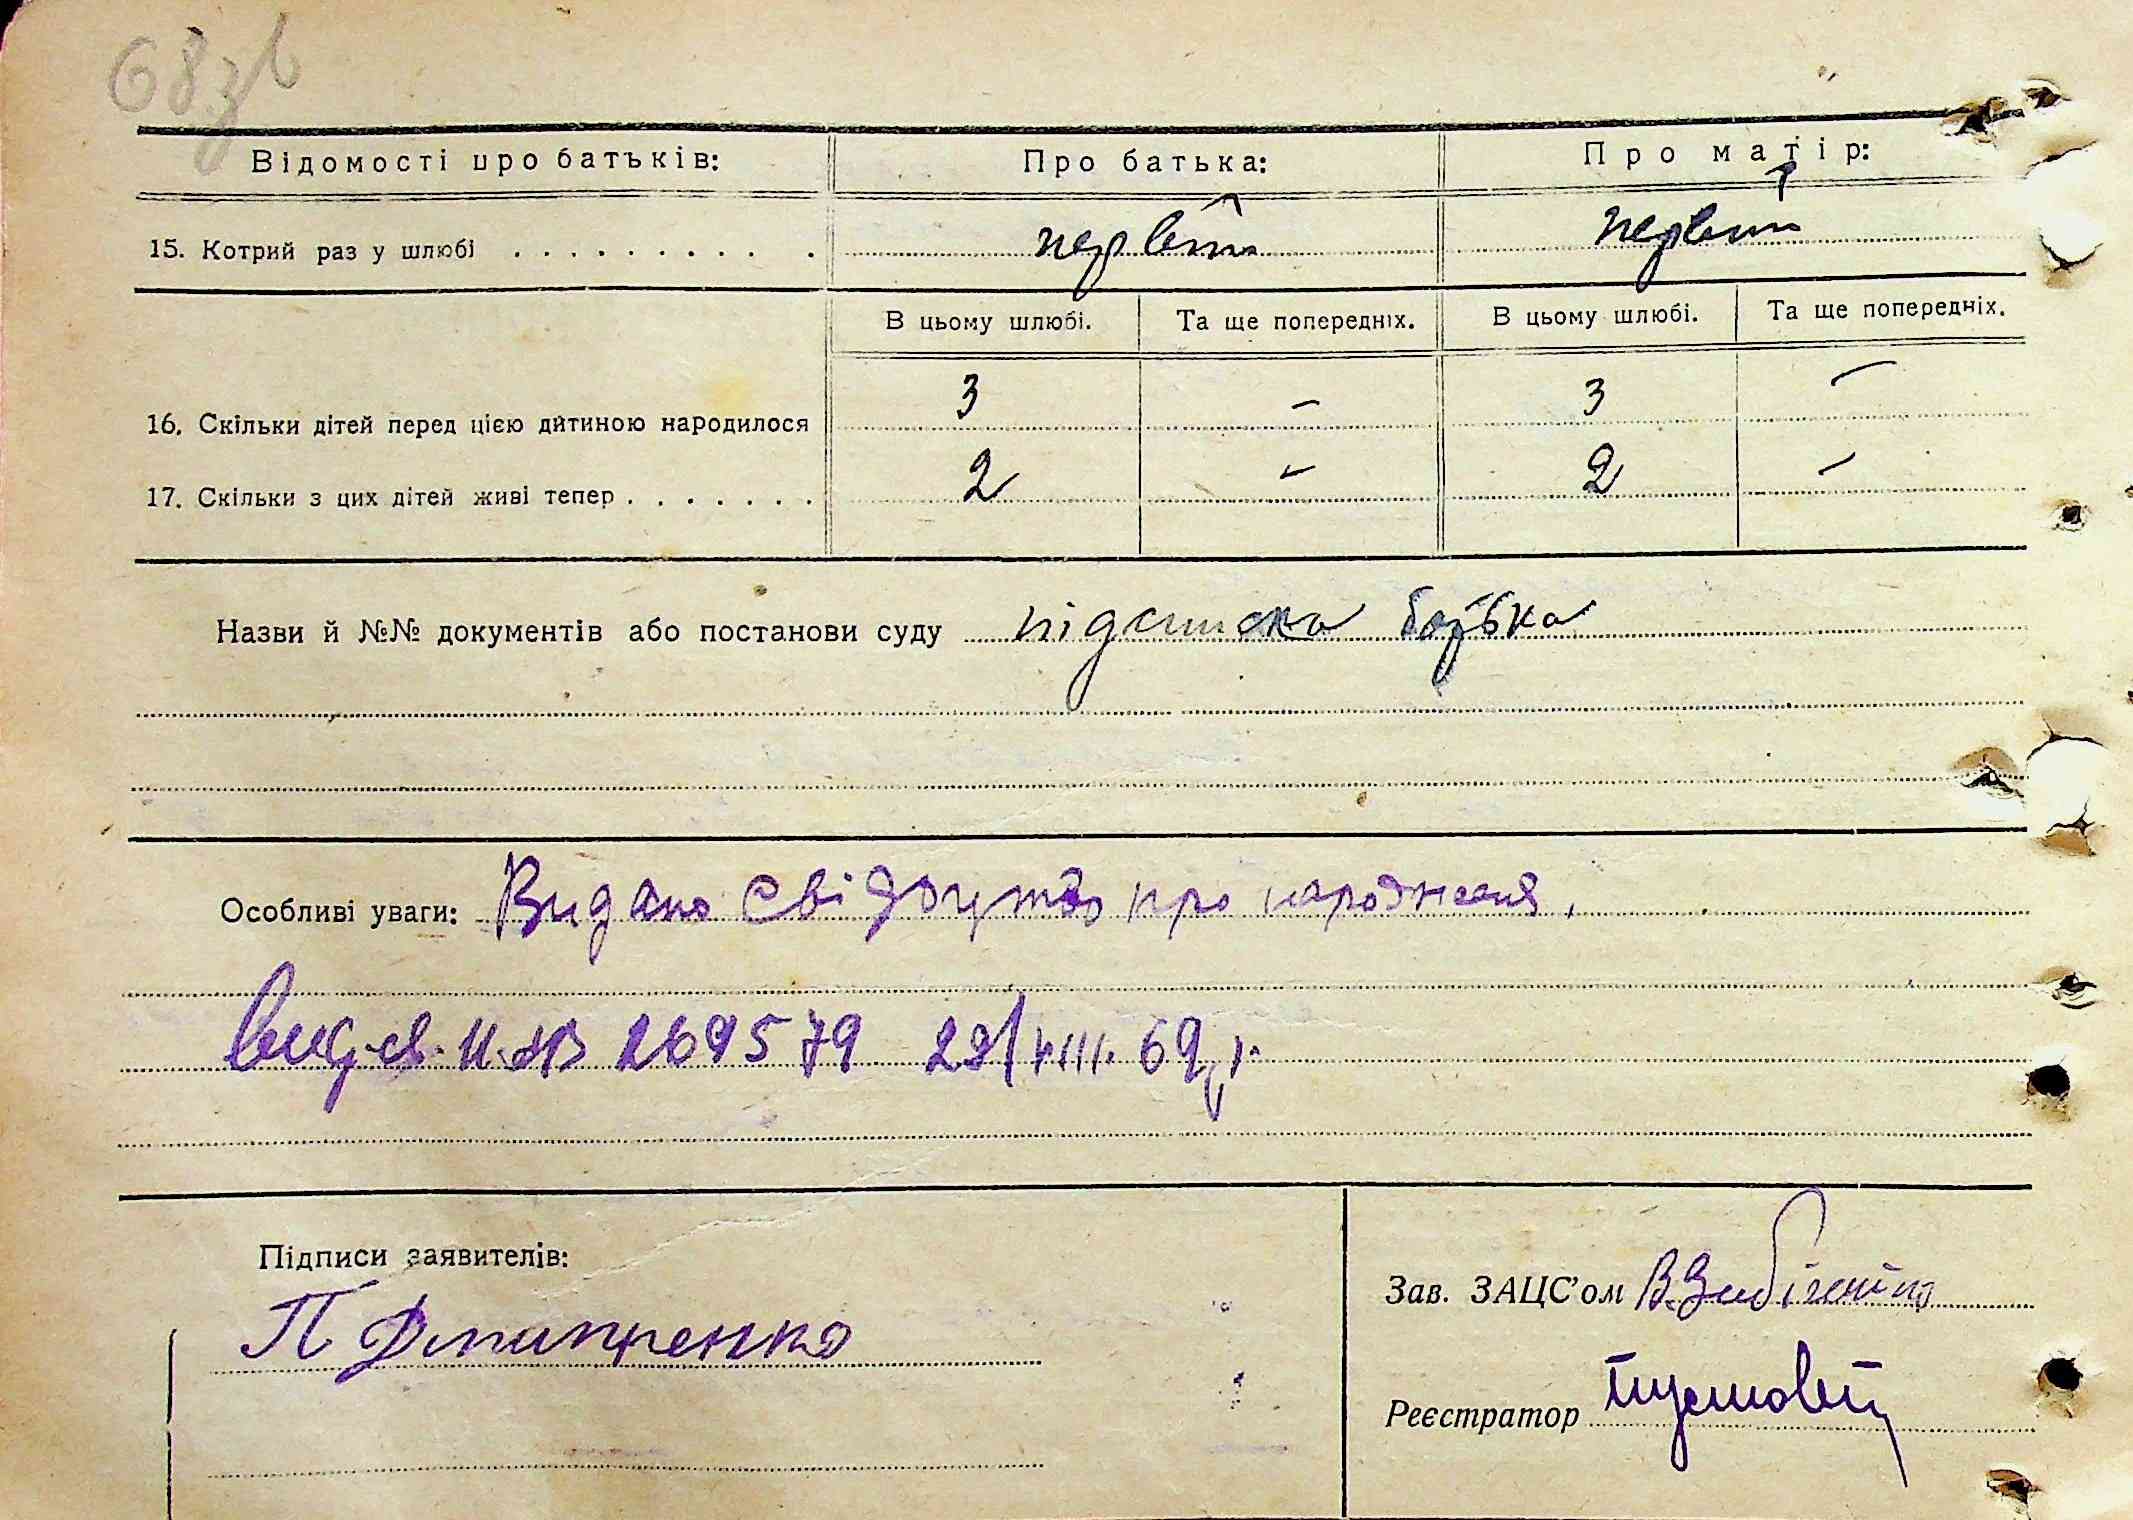 68зв
Відомості про батьків: Про батька: Про матір:
15. Котрий раз у шлюбі . . . . . . . . . . первий первий
В цьому шлюбі. Та ще попередніх. В цьому шлюбі. Та ще попередніх.
16. Скільки дітей перед цією дитиною народилося 3 – 3 –
17. Скільки з цих дітей живі тепер . . . . . . . 2 – 2 –
Назви й №№ документів або постанови суду підписка батька
Особливі уваги: Видано свідоцтво про народженя.
вид. св. 269579 29/VIII. 69 г.
Підписи заявителів:
П Дмитренко
Зав. ЗАЦС'ом В.
Реєстратор